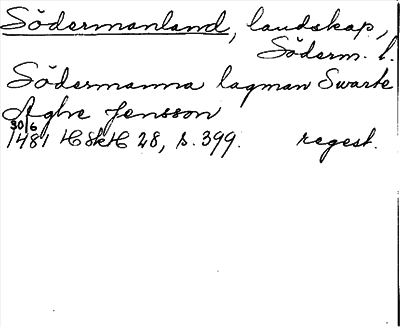 Södermanland, landskap,
Söderm. l.
Södermanna lagman Swarte
Aghe Jensson
30/6
1481 HSkH 28, s. 399. regest.